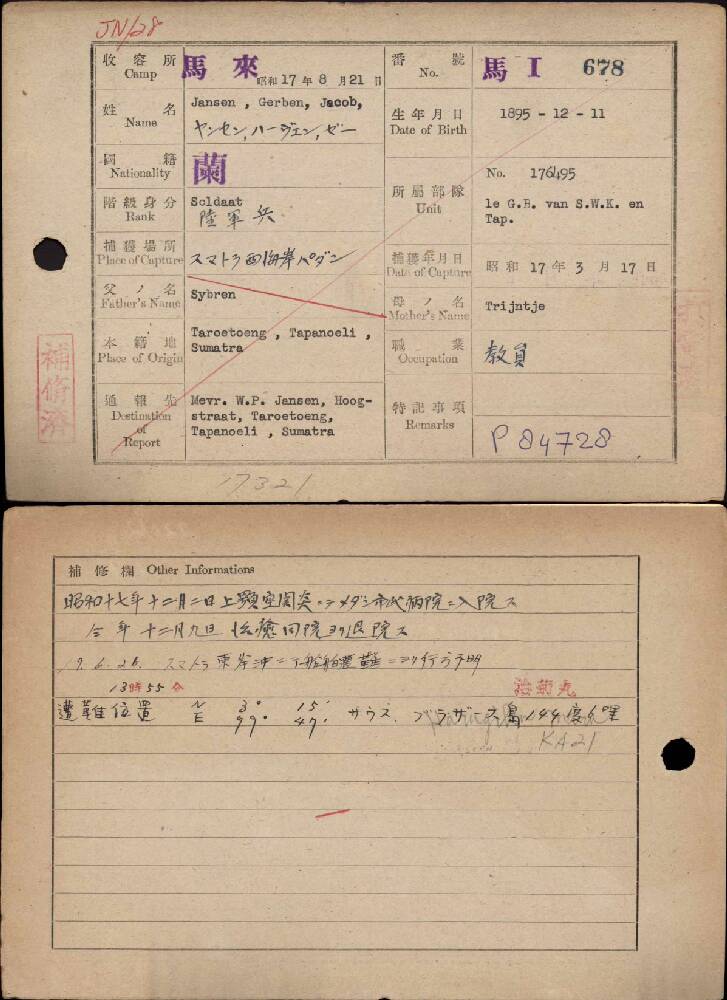 JN/28
收容所 Camp 馬來 昭和17年8月21日
番號 No. 馬 I 678
姓名 Name Jansen , Gerben, Jacob,
ヤンセン,ハージェン,ゼー
生年月日 Date of Birth 1895 - 12 - 11
國籍 Nationality 蘭
階級身分 Rank Soldaat
陸軍兵
所屬部隊 Unit No. 176495
le G.B. van S.W.K. en
Tap.
捕獲場所 Place of Capture スマトラ西海岸パダン
捕獲年月日 Date of Capture 昭和17年3月17日
父ノ名 Father's Name Sybren
母ノ名 Mother's Name Trijntje
本籍地 Place of Origin Taroetoeng , Tapanoeli ,
Sumatra
職業 Occupation 教員
通報先 Destination of Report Mevr. W.P. Jansen, Hoog-
straat, Taroetoeng,
Tapanoeli , Sumatra
特記事項 Remarks
P 84728
補修濟
17321
補修欄 Other Informations
昭和十七年十二月二日上顎空洞炎ニテメダン市民病院ニ入院ス
仝年十二月九日治癒同院ヨリ退院ス
19.6.26. スマトラ東岸沖ニテ船舶遭難ニヨリ行方不明
13時55分
遭難位置 N 3° 15'
E 99° 47' サウス、ブラザース島
KA21